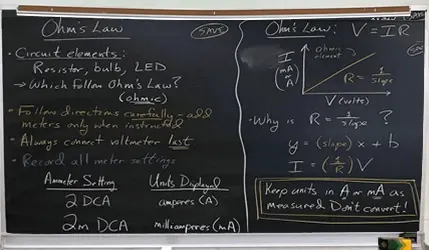 Ohm's Law
SAVE
• Circuit elements:
Resistor, bulb, LED
→ Which Follow Ohm's Law?
(ohmic)
• Follow directions carefully - add
meters only when instructed
• Always connect voltmeter last
• Record all meter settings
Ammeter Setting Units Displayed
2 DCA amperes (A)
2m DCA milliamperes (mA)
Ohm's Law: V = IR
I
(mA
or
A)
Ohmic
element
R = 1/slope
V (volts)
• Why is R = 1/slope ?
y = (slope) x + b
I = (1/R) V
Keep units in A or mA as
measured Don't convert!